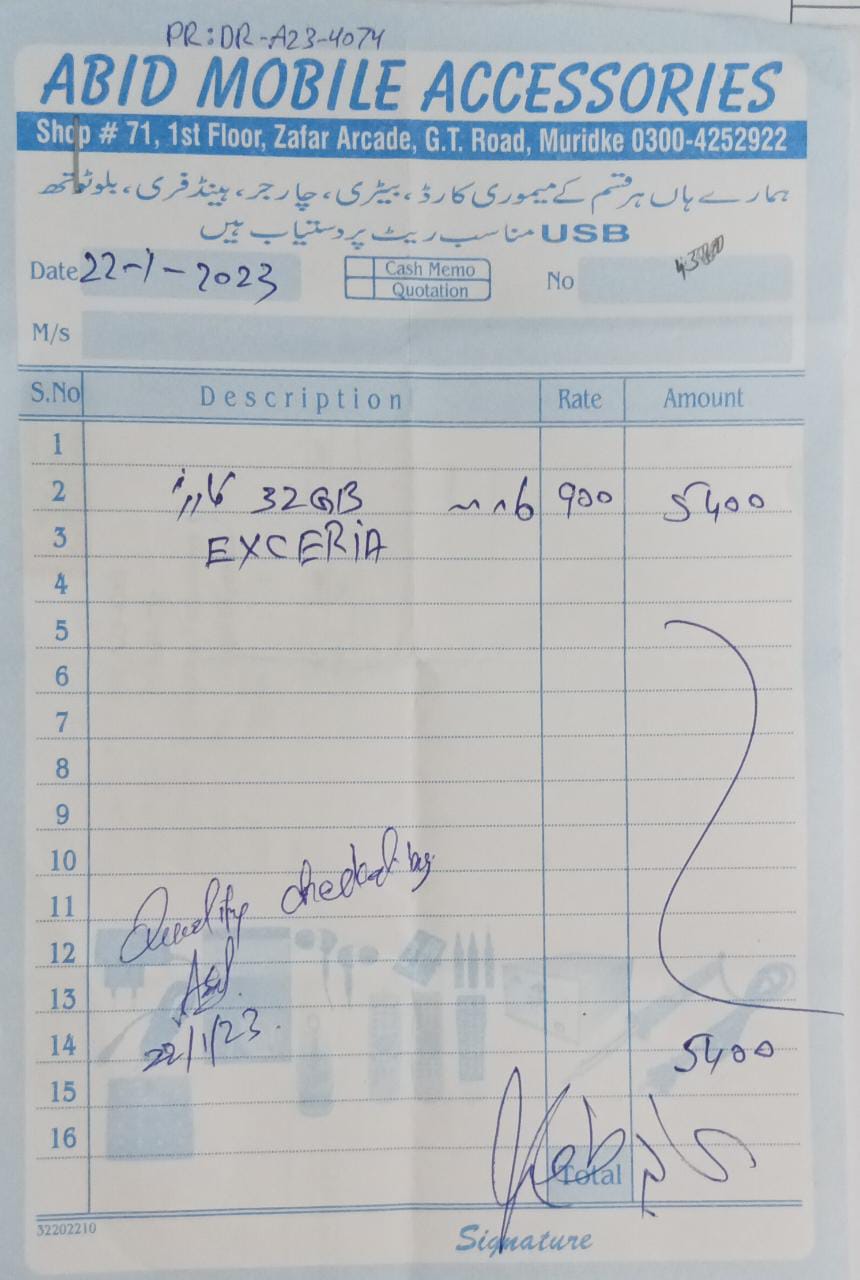 PR:DR-A23-4074
ABID MOBILE ACCESSORIES
Shop # 71, 1st Floor, Zafar Arcade, G.T. Road, Muridke 0300-4252922
ہمارے ہاں ہر قسم کے میموری کارڈ، بیٹری، چارجر، ہینڈفری، بلوٹوتھ
USB مناسب ریٹ پر دستیاب ہیں
Date 22-1-2023 Cash Memo No
Quotation
M/s
S.No Description Rate Amount
1
2 32GB 900 5400
3 EXCERIA
4
5
6
7
8
9
10 Quality checked by
11
12
13
14 22/1/23. 5400
15
16
Total
32202210 Signature